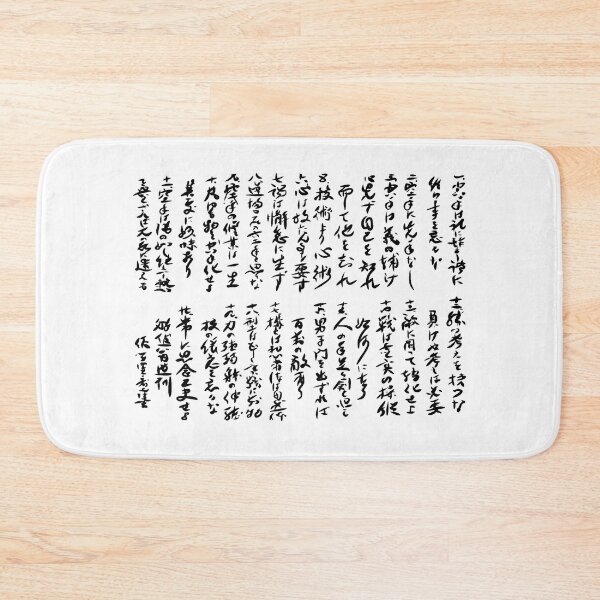 一空手は礼に始まり礼に
終る事を忘るな
二空手に先手なし
三空手は義の補け
四先づ自己を知れ
而して他を知れ
五技術より心術
六心は放たん事を要す
七禍は懈怠に生ず
八道場のみの空手と思ふな
九空手の修業は一生
十凡ゆる物を空手化せよ
其処に妙味あり
十一空手は湯の如し絶えず熱
度を与えざれば元の水に還る
十二勝つ考えを持つな
負けぬ考えは必要
十三敵に因って転化せよ
十四戦は虚実の操縦
如何に在り
十五人の手足を剣と思え
十六男子門を出づれば
百万の敵あり
十七構えは初心者に後は自然体
十八型は正しく実戦は別物
十九力の強弱体の伸縮
技の緩急を忘るな
二十常に思念工夫せよ